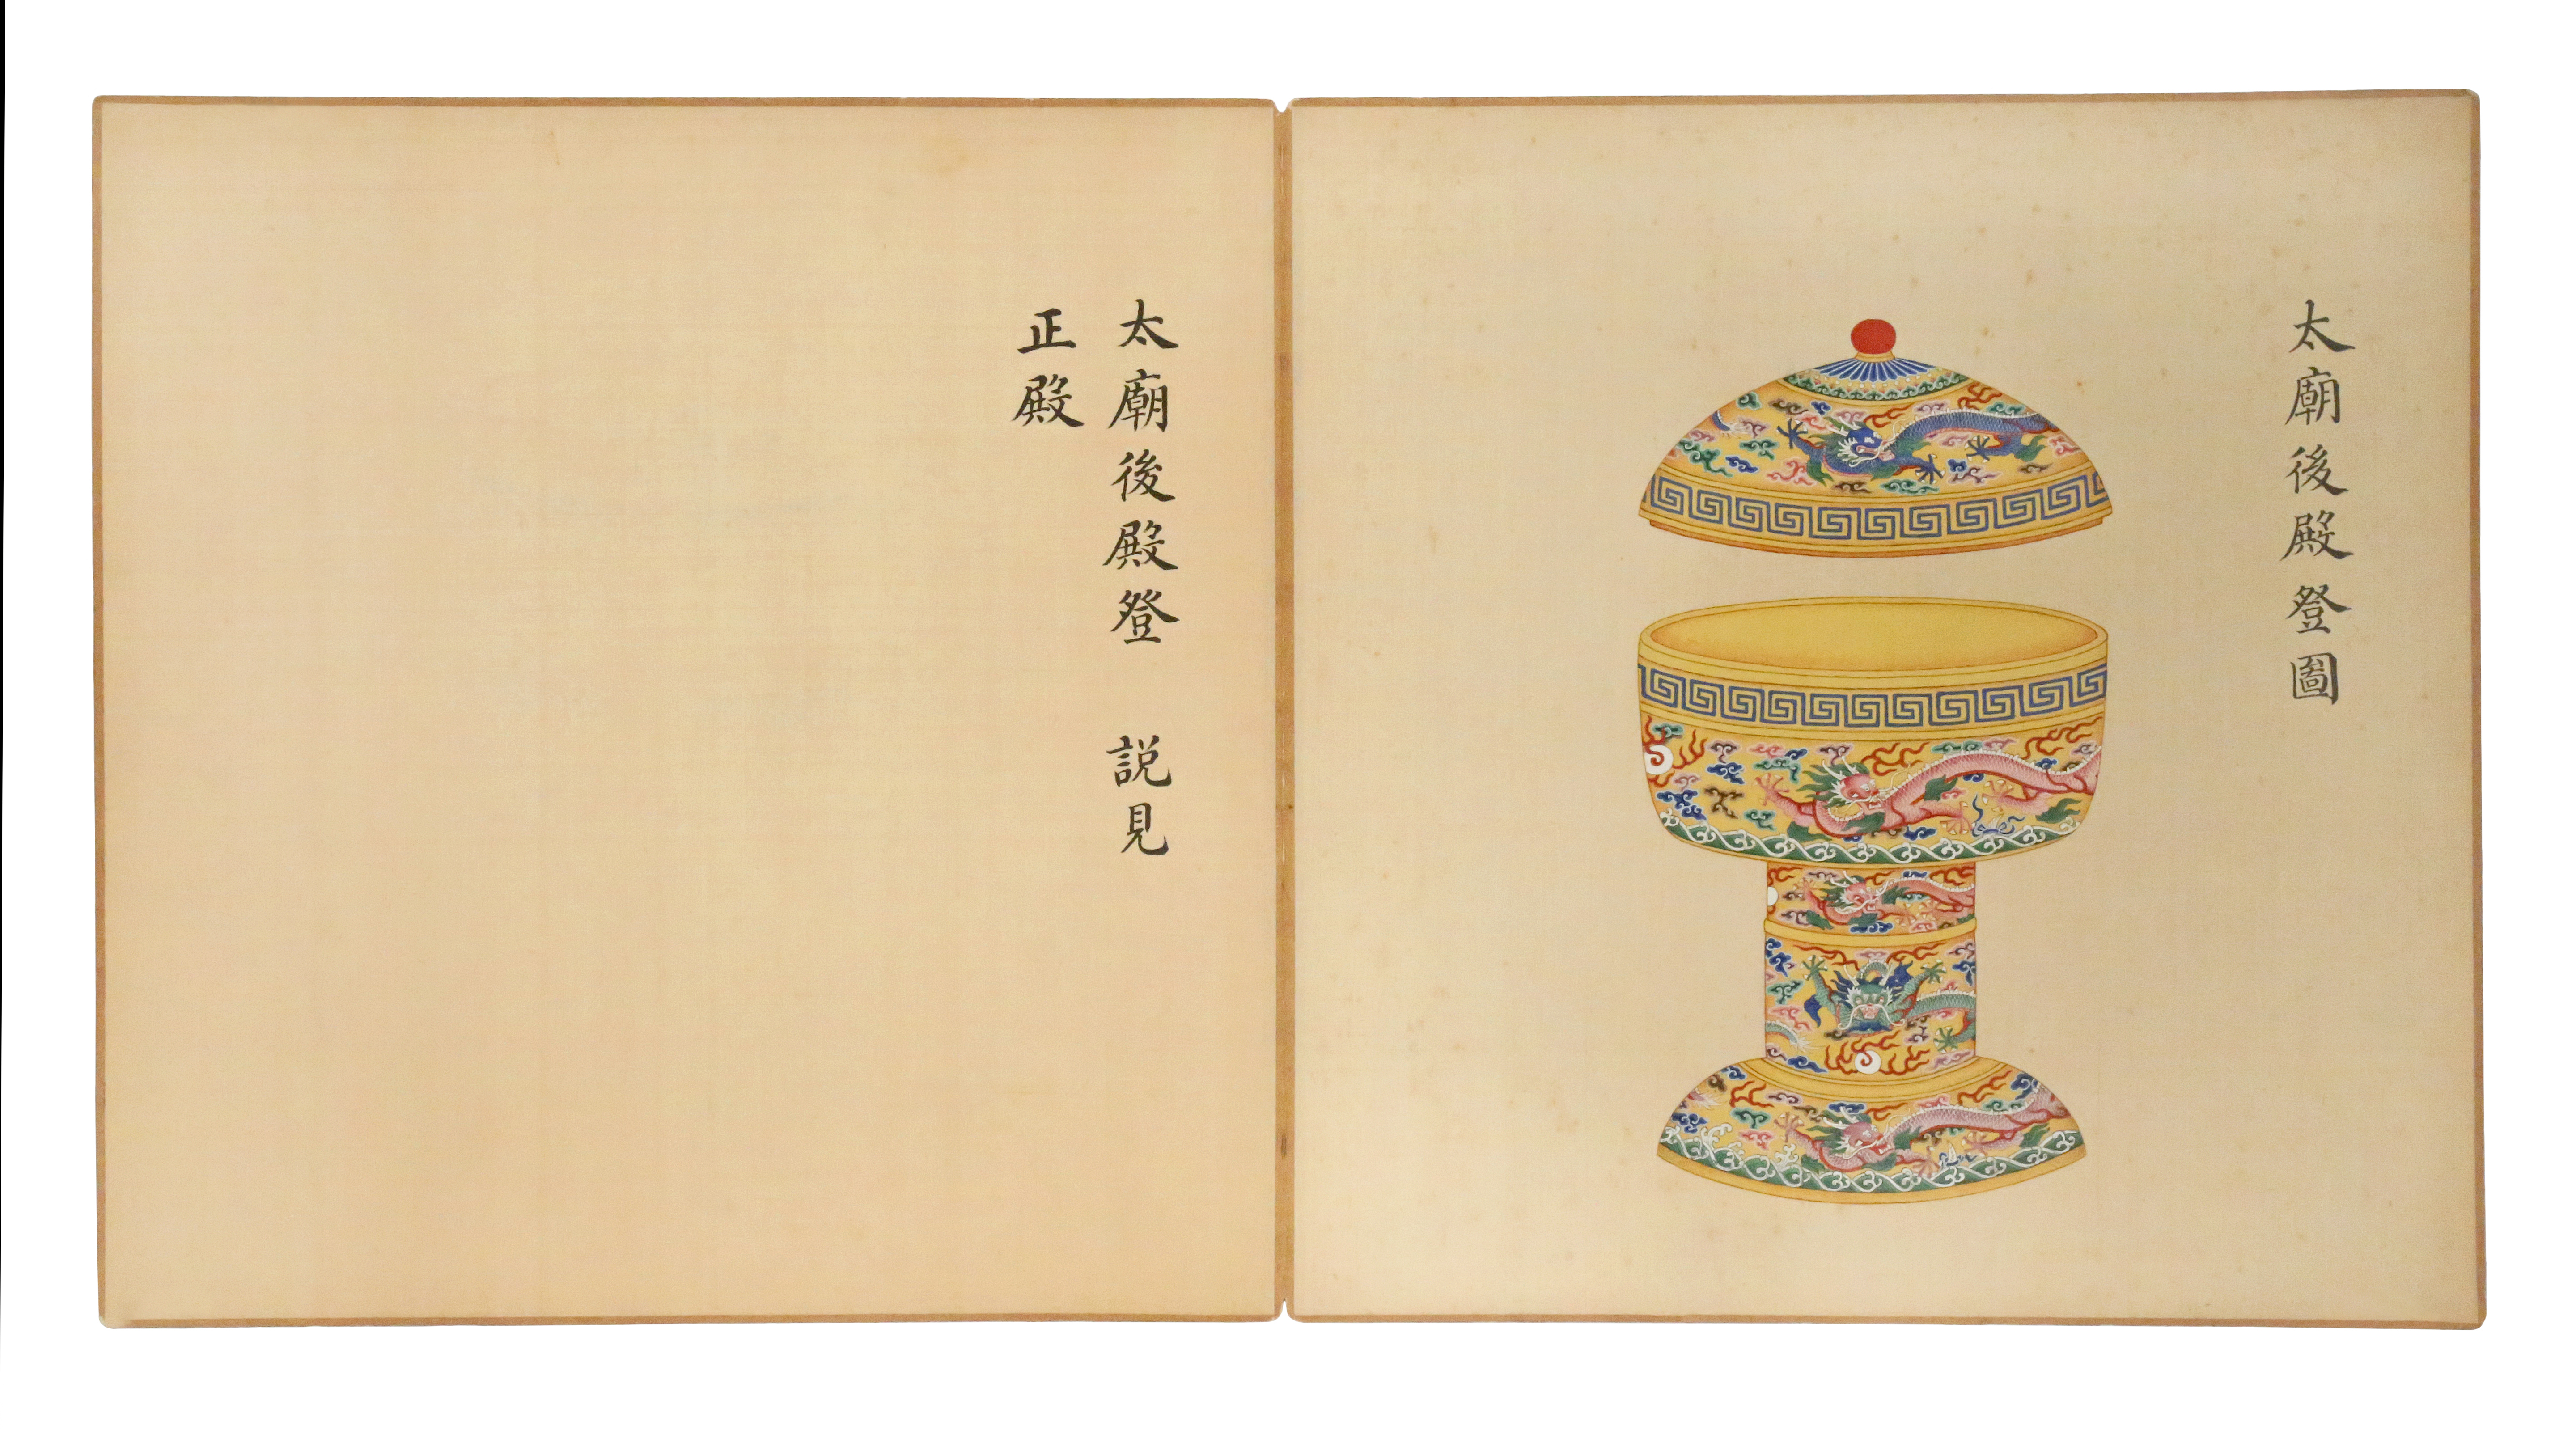 太廟後殿登圖
太廟後殿登　説見
正殿